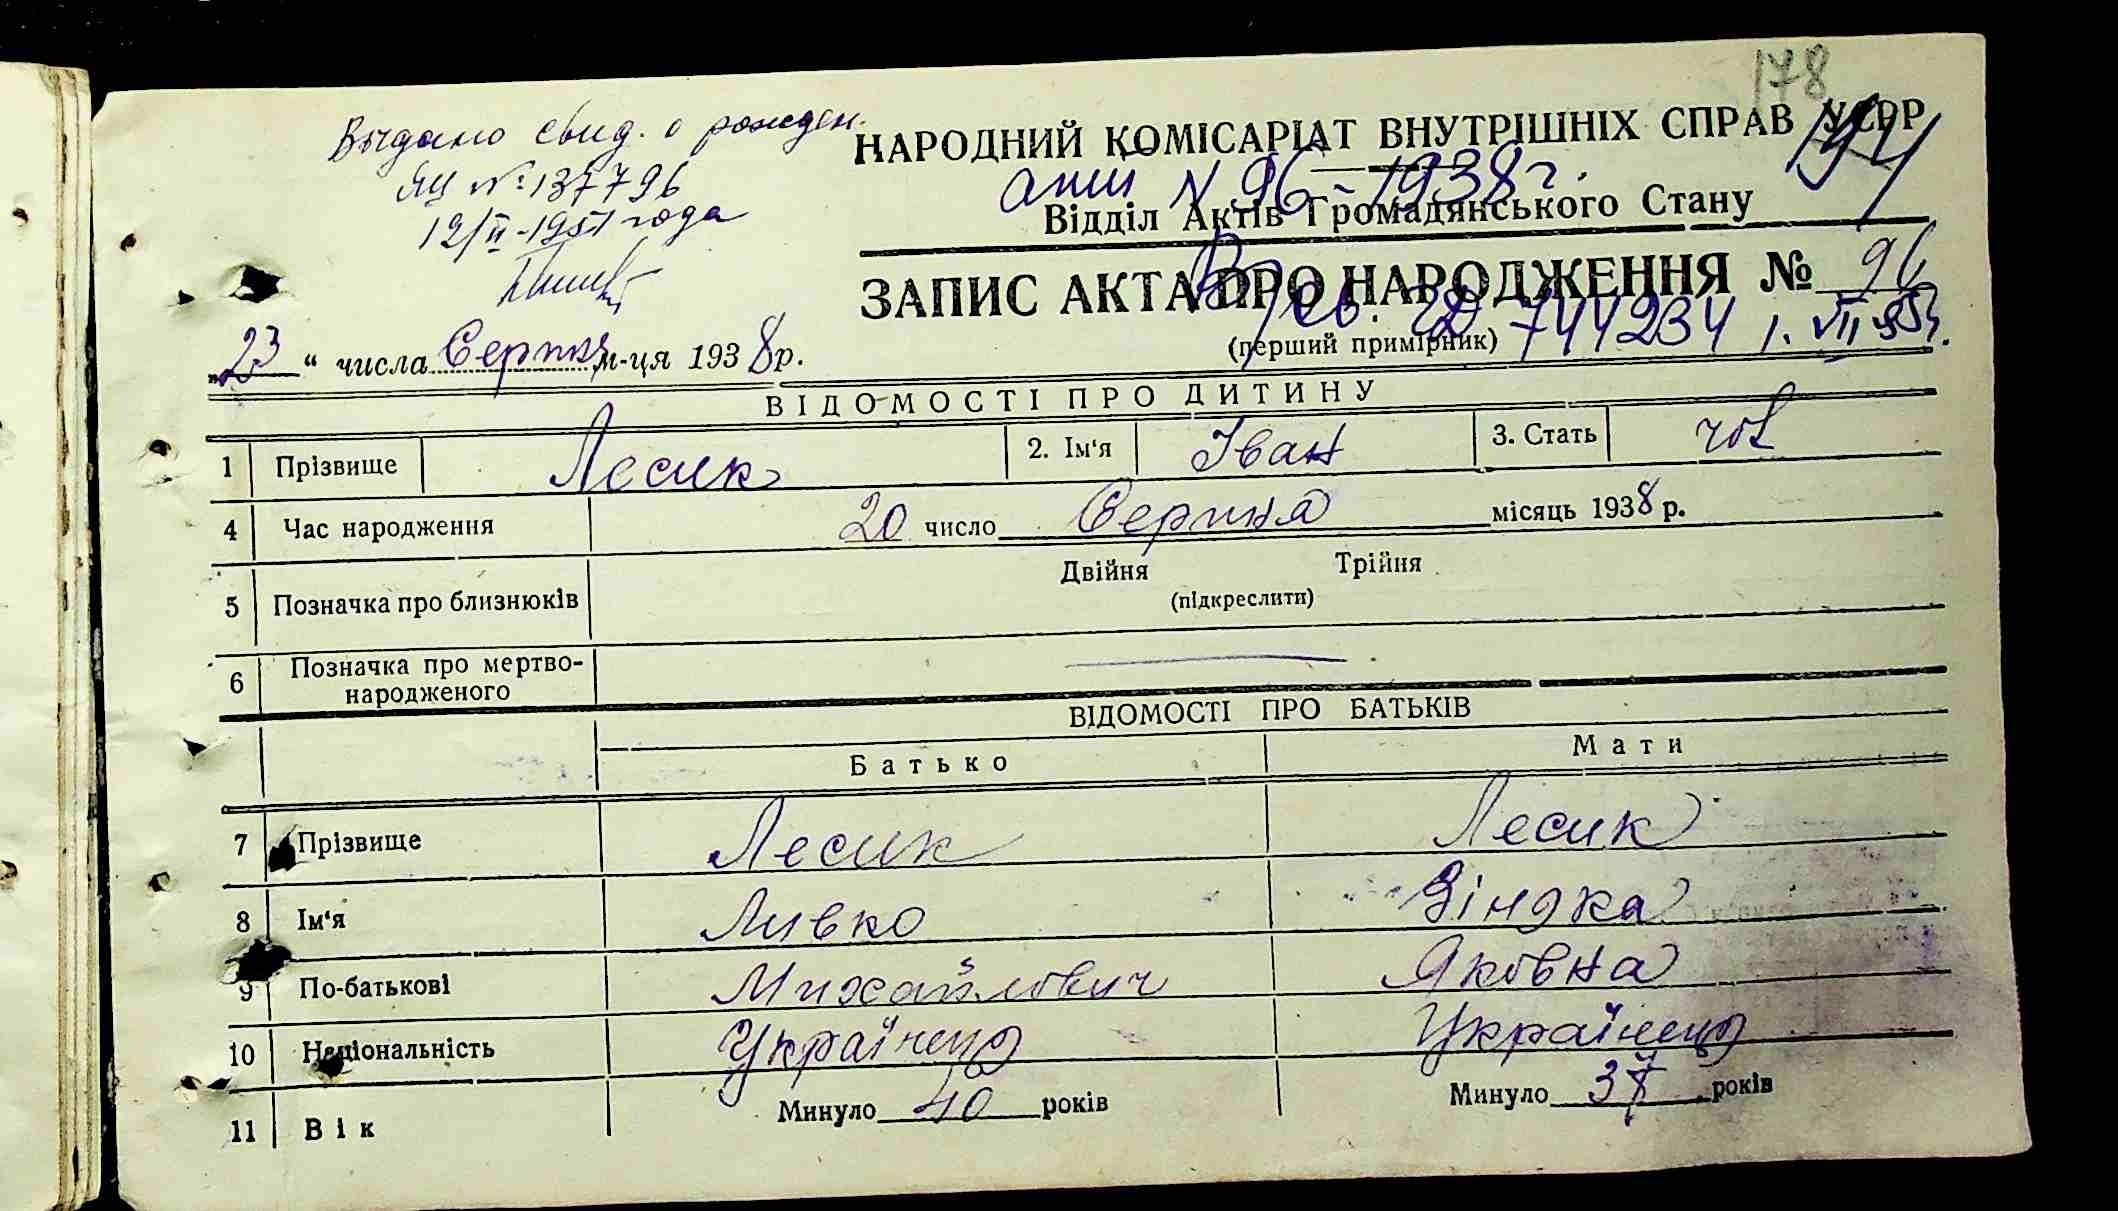 178
Выдано свид. о рожден.
ЯЦ № 137796
12/II-1951 года
НАРОДНИЙ КОМІСАРІАТ ВНУТРІШНІХ СПРАВ УСРР
акт № 96 - 1938 г.
Відділ Актів Громадянського Стану
ЗАПИС АКТА ПРО НАРОДЖЕННЯ № 96
744234 1. VII
(перший примірник)
„23“ числа Серпня м-ця 1938 р.
ВІДОМОСТІ ПРО ДИТИНУ
1 Прізвище Лесик 2. Ім'я Іван 3. Стать чол
4 Час народження 20 число Серпня місяць 1938 р.
5 Позначка про близнюків Двійня Трійня
(підкреслити)
6 Позначка про мертво-
народженого
ВІДОМОСТІ ПРО БАТЬКІВ
Батько Мати
7 Прізвище Лесик Лесик
8 Ім'я Ливко Зінька
9 По-батькові Михайлович Яковна
10 Національність Українець Українець
11 Вік Минуло 40 років Минуло 37 років